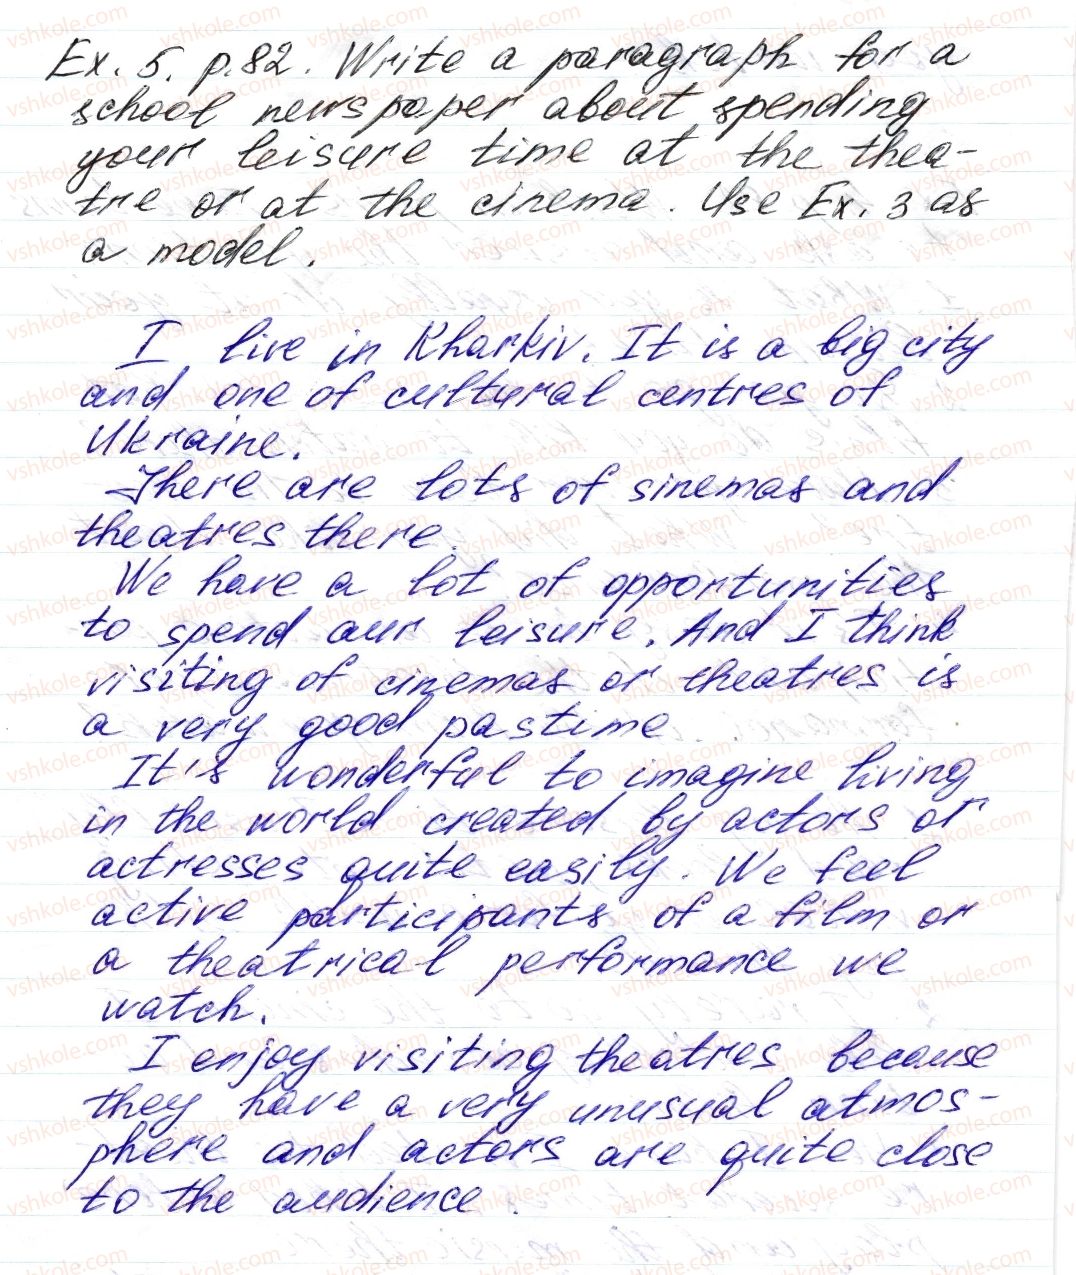 Ex. 5. p.82. Write a paragraph for a
school newspaper about spending
your leisure time at the thea-
tre or at the cinema. Use Ex. 3 as
a model.
I live in Kharkiv. It is a big city
and one of cultural centres of
Ukraine.
There are lots of sinemas and
theatres there.
We have a lot of opportunities
to spend our leisure. And I think
visiting of cinemas or theatres is
a very good pastime
It's wonderful to imagine living
in the world created by actors or
actresses quite easily. We feel
active participants of a film or
a theatrical performance we
watch.
I enjoy visiting theatres because
they have a very unusual atmos-
phere and actors are quite close
to the audience.